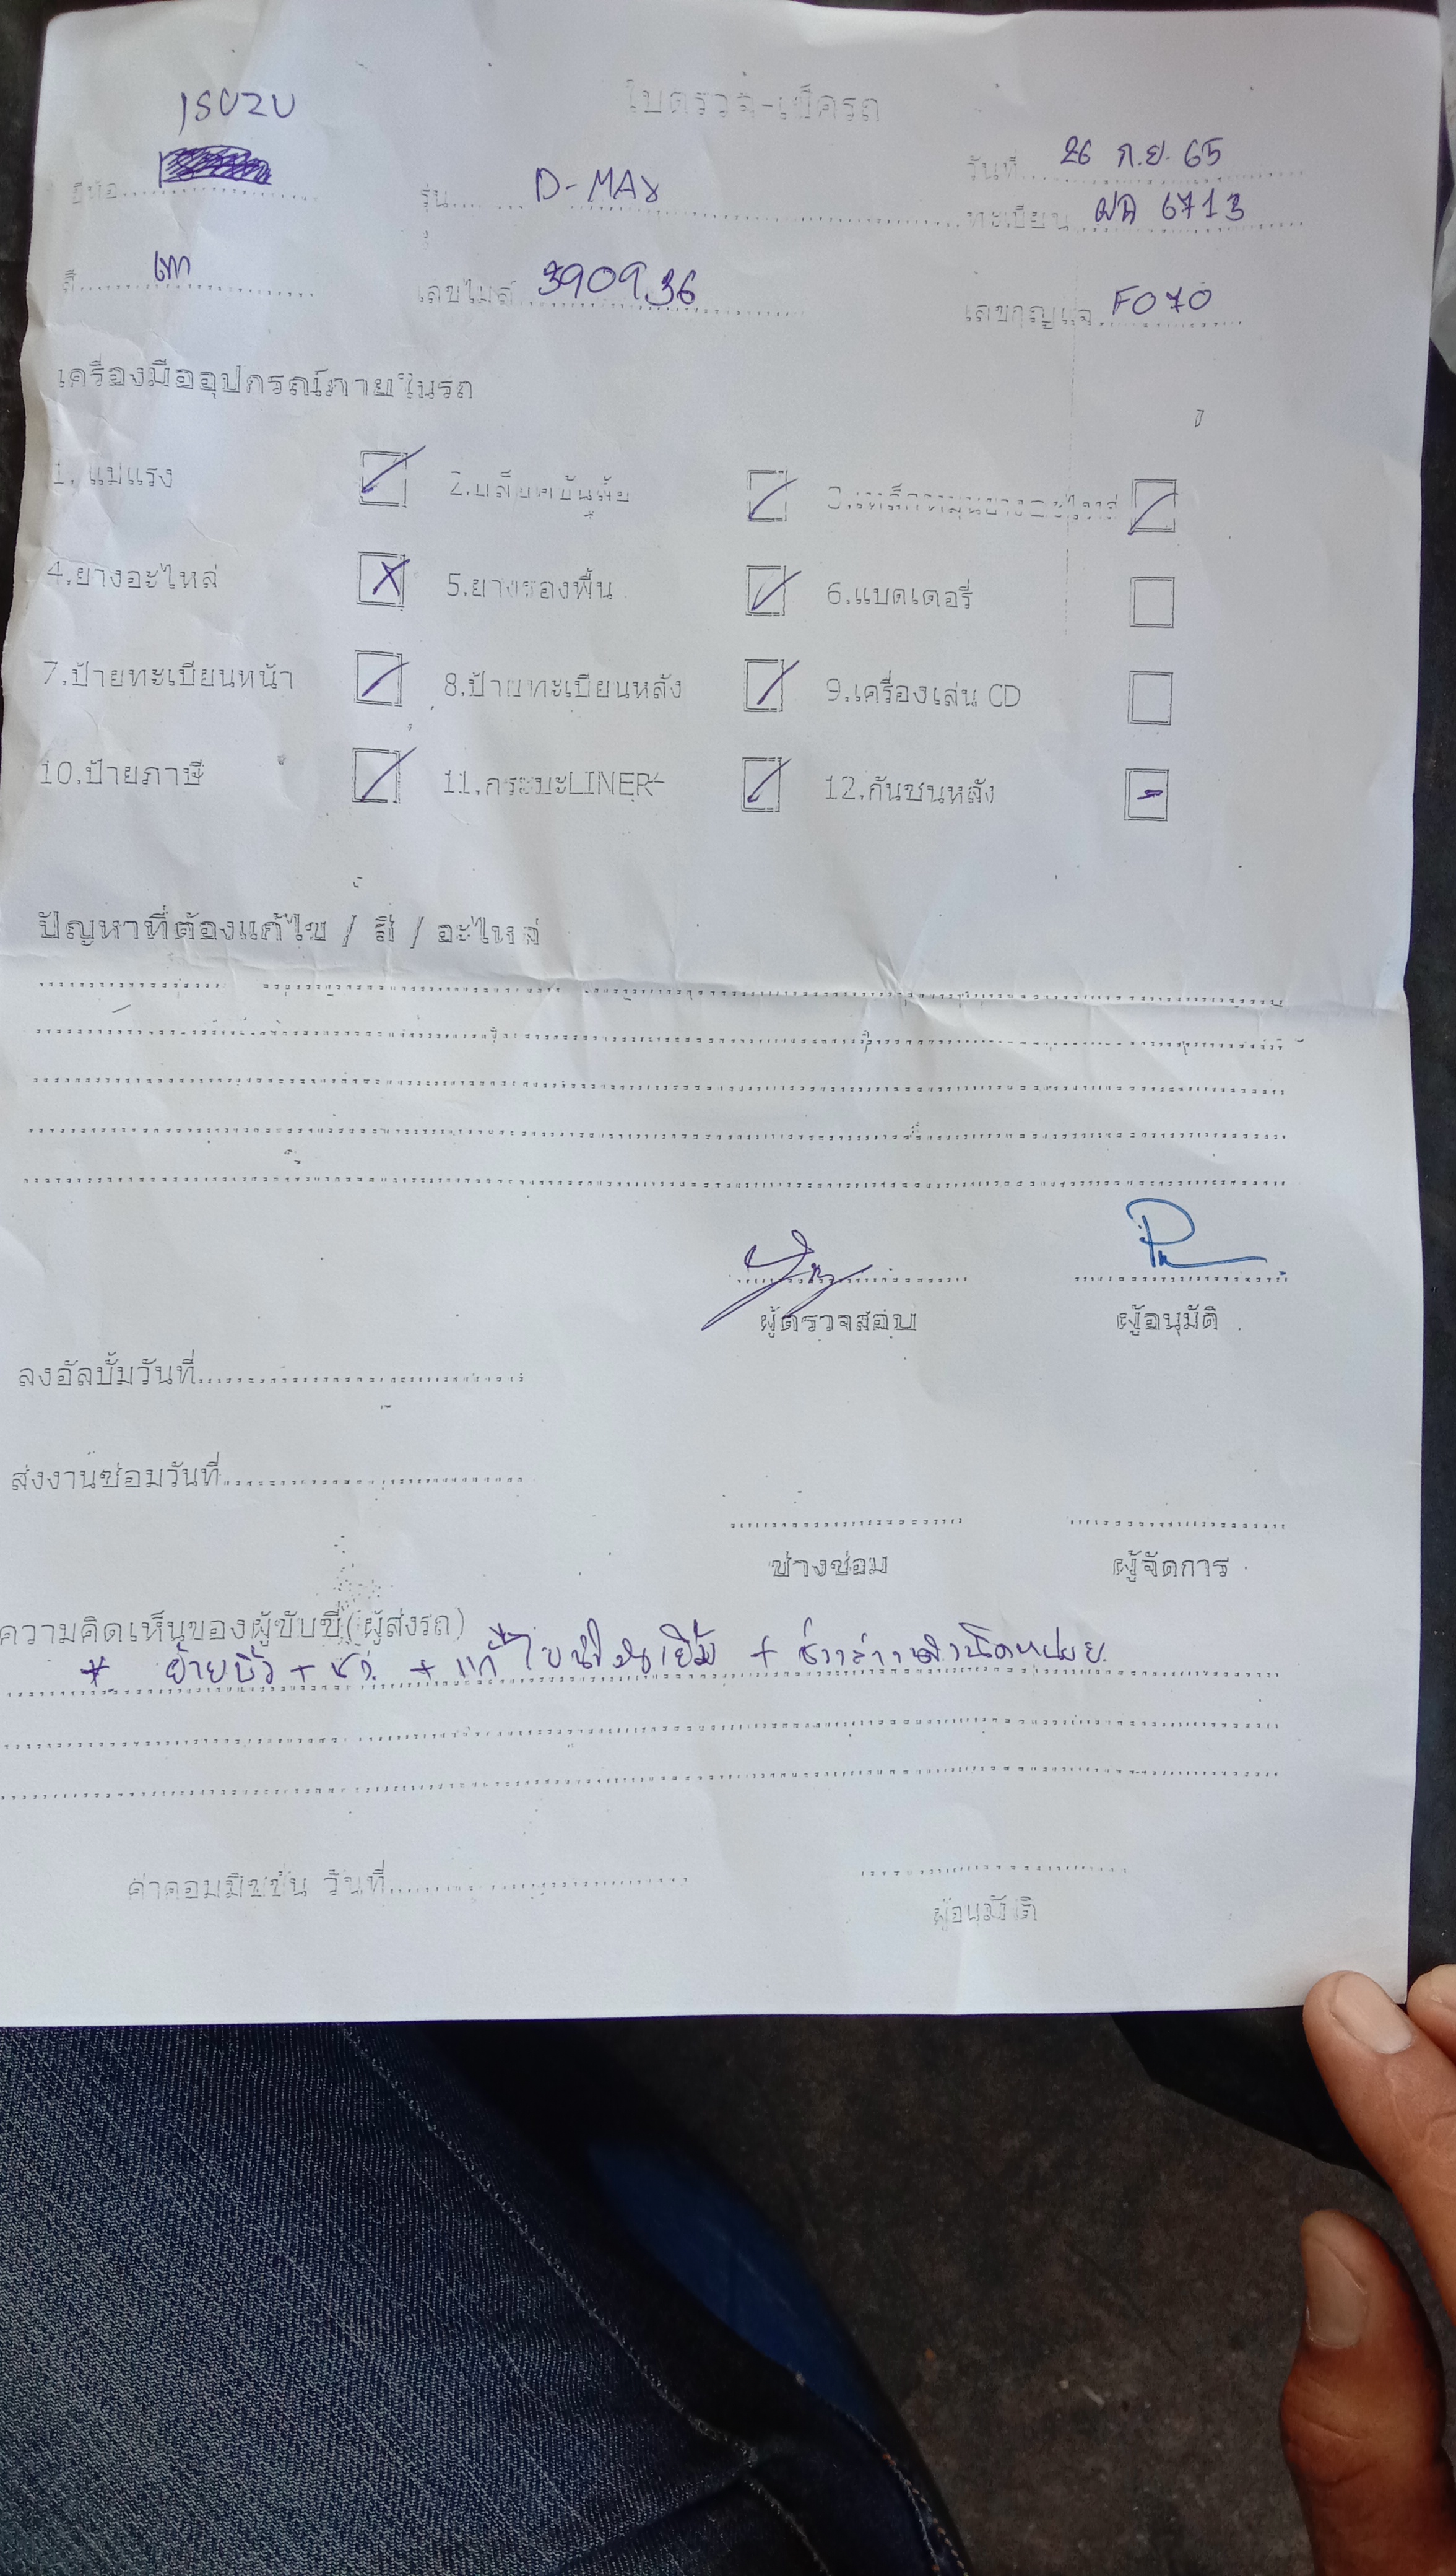 ISUZU
ใบตรวจ-เช็ครถ
วันที่ 26 ก.ย. 65
ยี่ห้อ รุ่น D-MAX ทะเบียน 6713
สี เทา เลขไมล์ 390936 เลขกุญแจ F070
เครื่องมืออุปกรณ์ภายในรถ
1. แม่แรง 2.บล็อคขันล้อ
4.ยางอะไหล่ 5.ยางรองพื้น 6.แบตเตอรี่
7.ป้ายทะเบียนหน้า 8.ป้ายทะเบียนหลัง 9.เครื่องเล่น CD
10.ป้ายภาษี 11.กระบะLINER 12.กันชนหลัง
ปัญหาที่ต้องแก้ไข / สี / อะไหล่
ผู้ตรวจสอบ ผู้อนุมัติ
ลงอัลบั้มวันที่
ส่งงานซ่อมวันที่
ช่างซ่อม ผู้จัดการ
ความคิดเห็นของผู้ขับขี่(ผู้ส่งรถ)
* + + แก้ไข +
ค่าคอมมิชชั่น วันที่
ผู้อนุมัติ